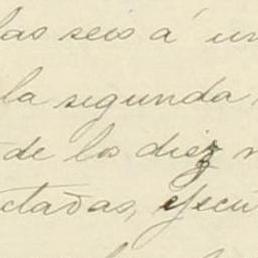 las seis á un
la segunda
de los diez n
ctadas, ejecu